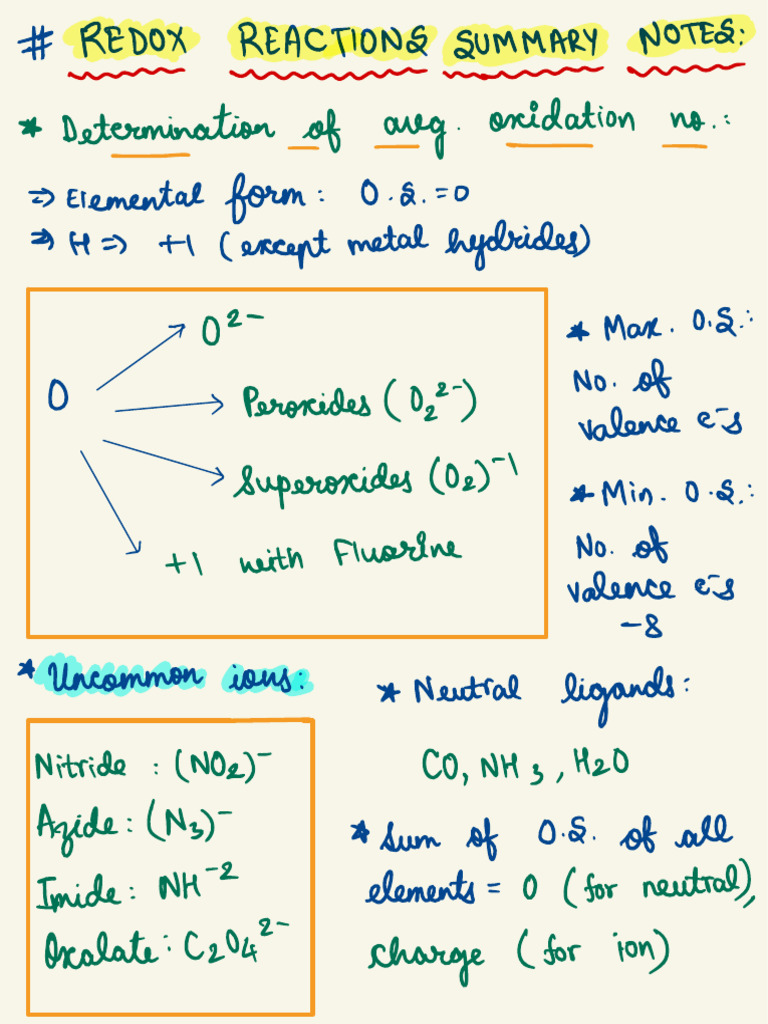 # REDOX REACTIONS SUMMARY NOTES:
* Determination of avg. oxidation no.:
⇒ Elemental form: O.S. = 0
⇒ H ⇒ +1 (except metal hydrides)
O
O²⁻
Peroxides (O₂²⁻)
Superoxides (O₂)⁻¹
+1 with Fluorine
* Max. O.S.:
No. of
valence e⁻s
* Min. O.S.:
No. of
valence e⁻s
-8
* Uncommon ions:
Nitride : (NO₂)⁻
Azide : (N₃)⁻
Imide : NH⁻²
Oxalate : C₂O₄²⁻
* Neutral ligands:
CO, NH₃, H₂O
* Sum of O.S. of all
elements = 0 (for neutral),
charge (for ion)